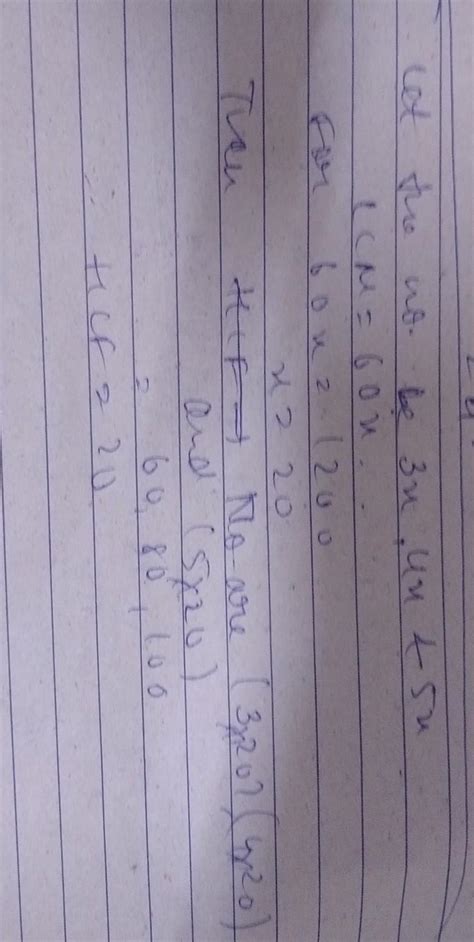 Let the no. be 3x, 4x + 5x
LCM = 60x.
For 60x = 1200
x = 20
Then HCF → No are (3x20), (4x20)
and (5x20)
= 60, 80, 100
HCF = 20